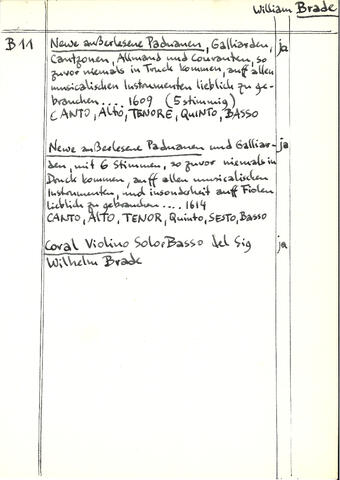 William Brade
B 11
Newe außerlesene Paduanen, Galliarden, ja
Cantzonen, Allmand und Couranten, so
zuvor niemals in Truck kommen, auff allen
musicalischen Instrumenten lieblich zu ge-
brauchen.... 1609 (5stimmig)
CANTO, Alto, TENORE, QUINTO, BASSO
Newe außerlesene Paduanen und Galliar- ja
den, mit 6 Stimmen, so zuvor niemals in
Druck kommen, auff allen musicalischen
Instrumenten, und insonderheit auff Fiolen
lieblich zu gebrauchen.... 1614
CANTO, ALTO, TENOR, Quinto, SESTO, Basso
Coral Violino Solo: Basso del Sig ja
Wilhelm Brade